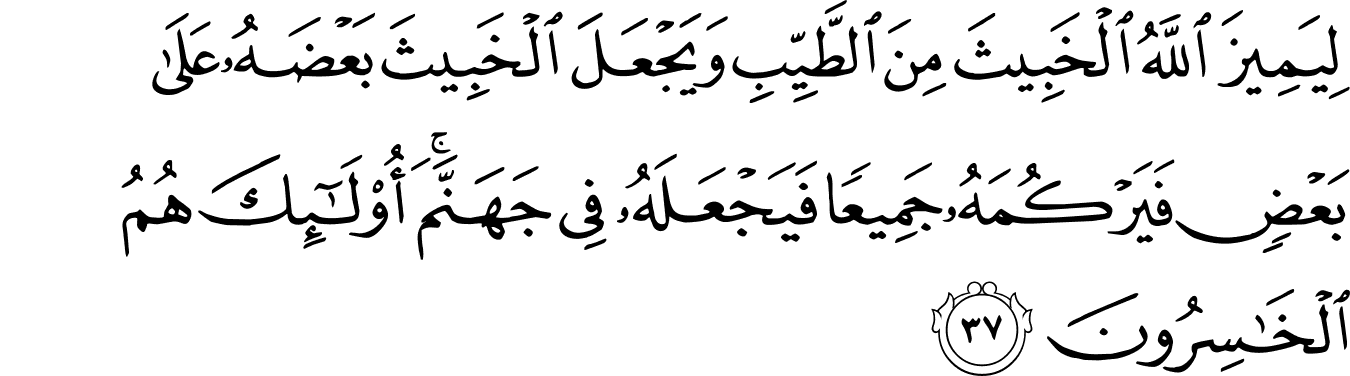 لِيَمِيزَ ٱللَّهُ ٱلْخَبِيثَ مِنَ ٱلطَّيِّبِ وَيَجْعَلَ ٱلْخَبِيثَ بَعْضَهُۥ عَلَىٰ
بَعْضٍ فَيَرْكُمَهُۥ جَمِيعًا فَيَجْعَلَهُۥ فِى جَهَنَّمَ ۚ أُو۟لَـٰٓئِكَ هُمُ
ٱلْخَـٰسِرُونَ ٣٧